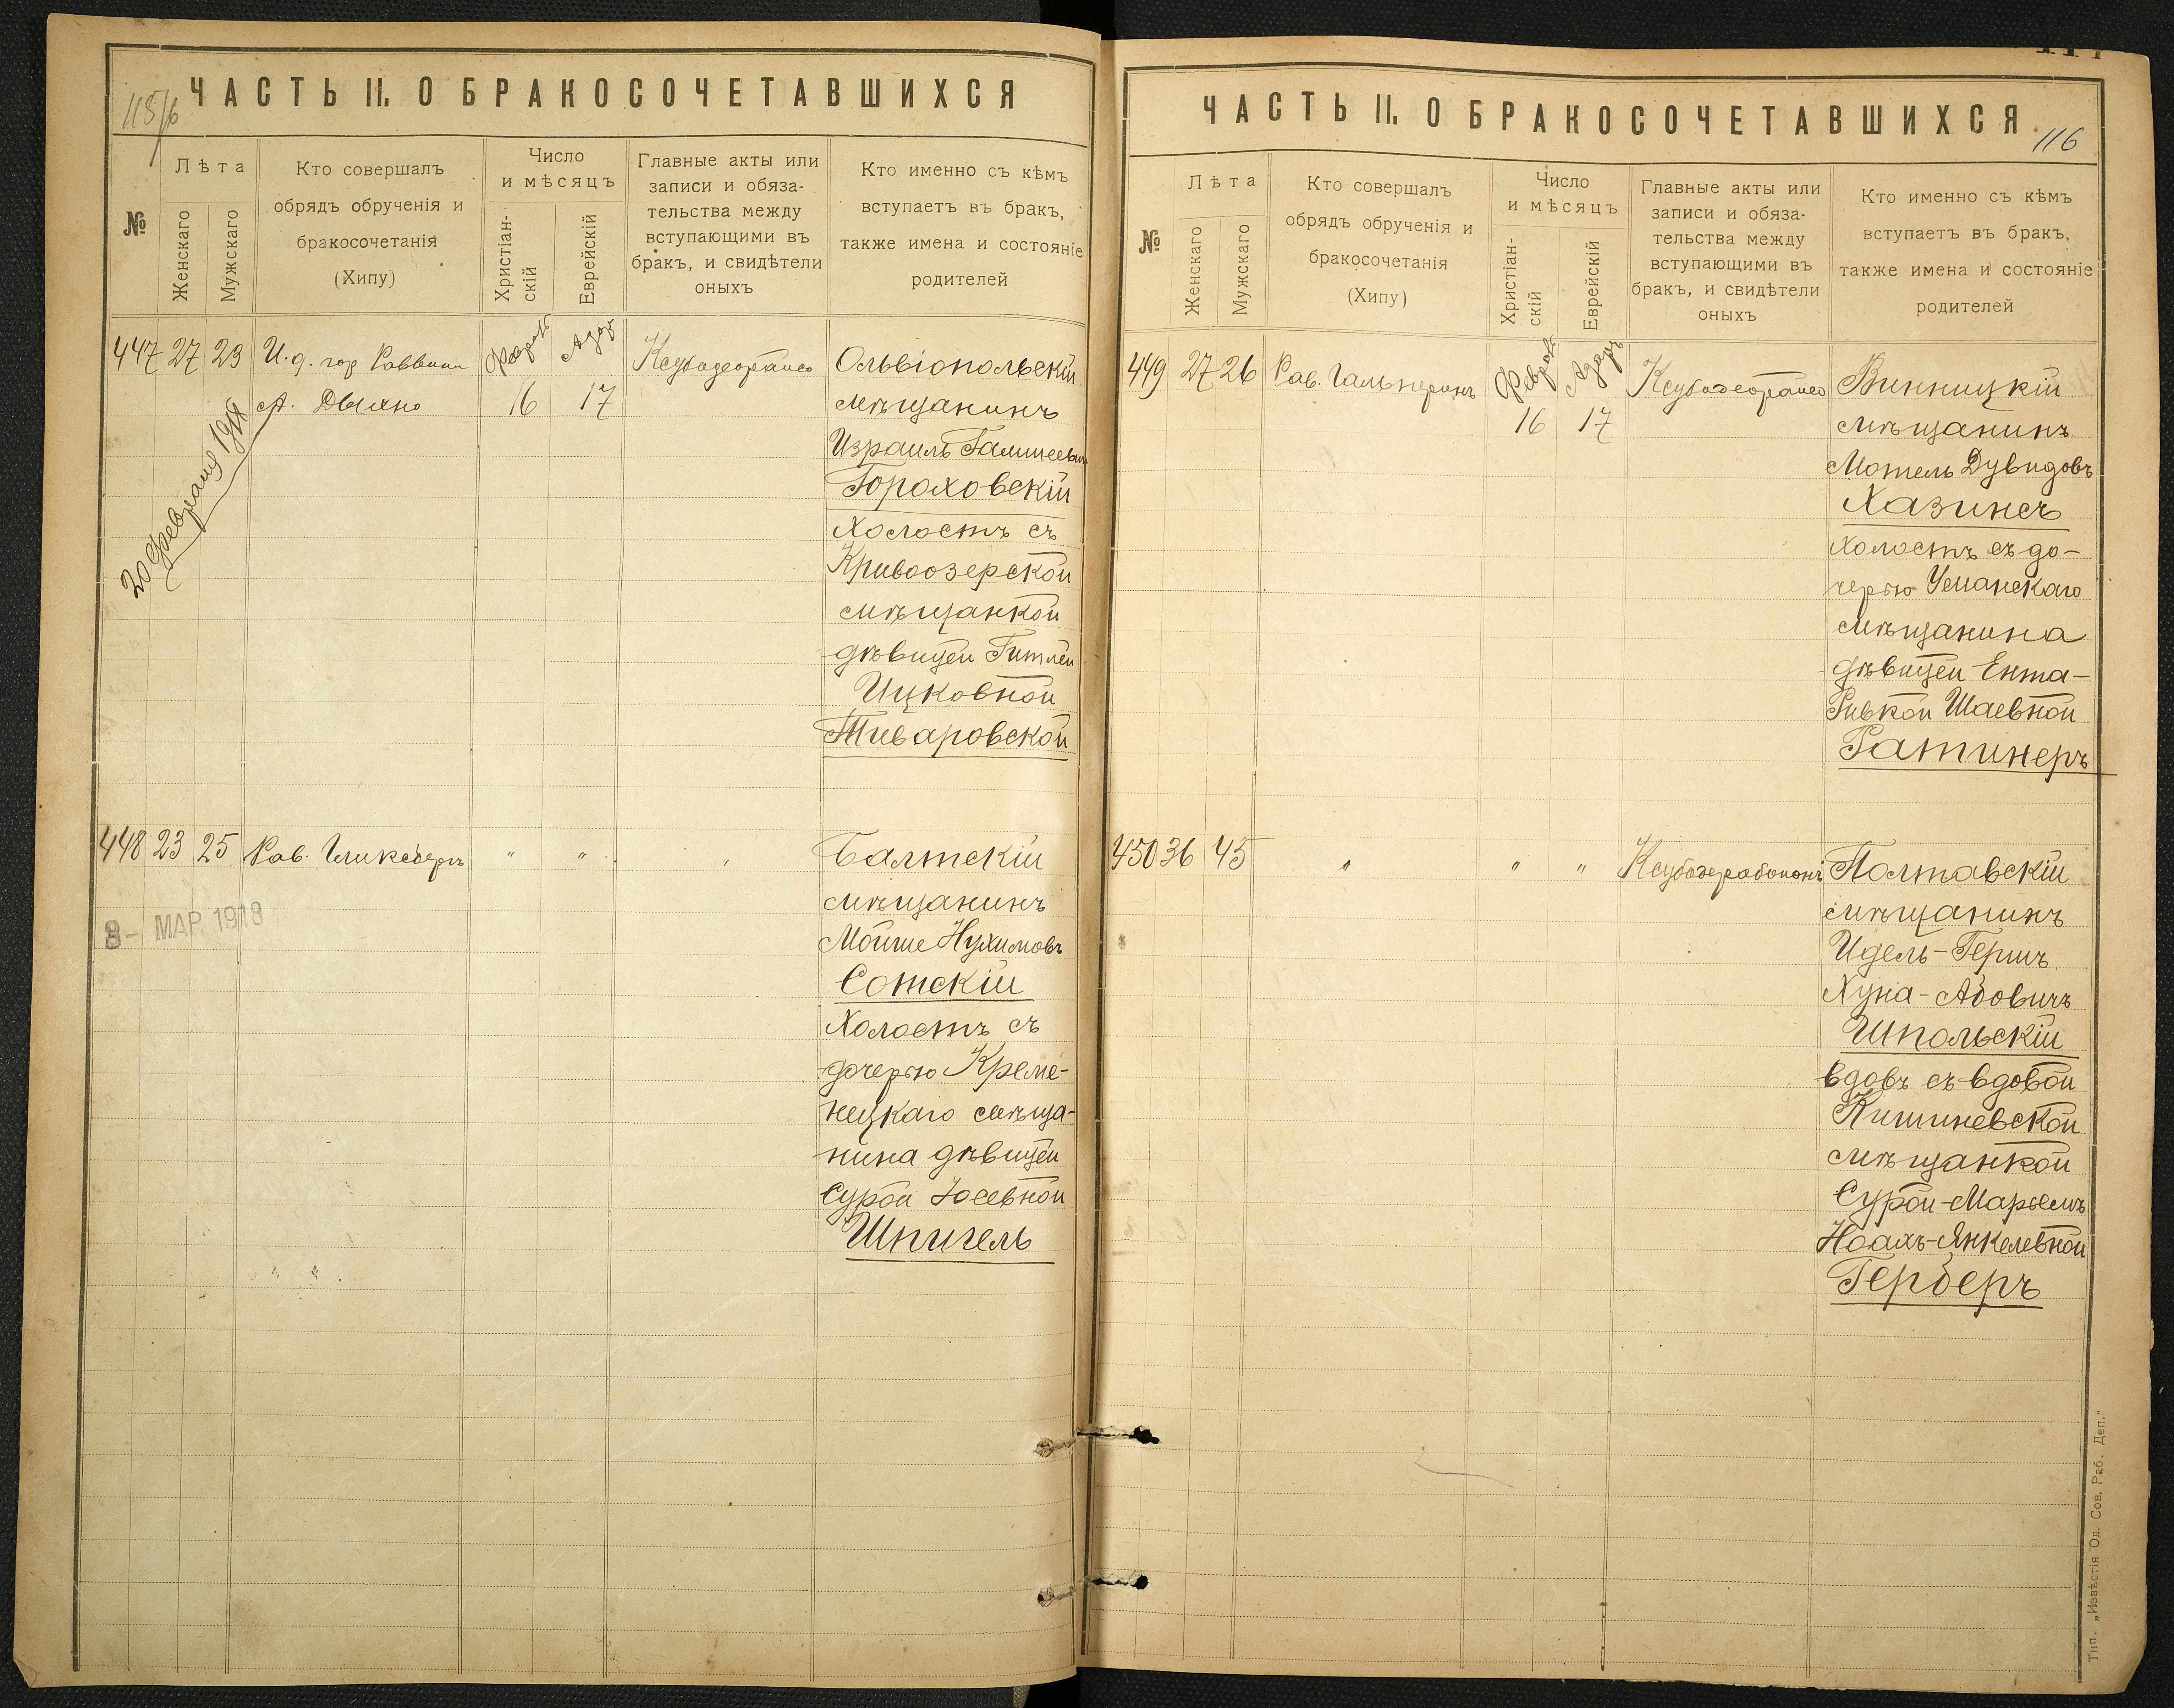 115/6
ЧАСТЬ II. О БРАКОСОЧЕТАВШИХСЯ
№
Лѣта
Женскаго
Мужскаго
Кто совершалъ
обрядъ обрученія и
бракосочетанія
(Хипу)
Число
и мѣсяцъ
Христіан-
скій
Еврейскій
Главные акты или
записи и обяза-
тельства между
вступающими въ
бракъ, и свидѣтели
оныхъ
Кто именно съ кѣмъ
вступаетъ въ бракъ,
также имена и состояніе
родителей
447 27 29 И. д. гор. Раввина
Адар
Ольвіопольскій
А. 16 17
мѣщанинъ
Израиль
Гороховскій
холостъ съ
Кривоозерской
мѣщанкой
дѣвицей Гитлей
Ицковной
Тиваровской
20 февраля
448 23 25 Рав. Гликсбергъ " " "
Балтскій
мѣщанинъ
Мойше Нухимовъ
Сотскій
холостъ съ
дочерью Креме-
нецкаго мѣща-
нина дѣвицей
Сурой Іосевной
Шпигель
8 - МАР. 1918
ЧАСТЬ II. О БРАКОСОЧЕТАВШИХСЯ
116
№
Лѣта
Женскаго
Мужскаго
Кто совершалъ
обрядъ обрученія и
бракосочетанія
(Хипу)
Число
и мѣсяцъ
Христіан-
скій
Еврейскій
Главные акты или
записи и обяза-
тельства между
вступающими въ
бракъ, и свидѣтели
оныхъ
Кто именно съ кѣмъ
вступаетъ въ бракъ,
также имена и состояніе
родителей
449 27 26 Рав. Гальперинъ
Адаръ
Винницкій
16 17
мѣщанинъ
Мотель Дувидовъ
Хазинъ
холостъ съ до-
черью Уманскаго
мѣщанина
дѣвицей Ента-
Ривкой Шаевной
Ратинеръ
450 36 45 " " "
Полтавскій
мѣщанинъ
Идель-Гершъ
Хуна-Абовичъ
Шпольскій
вдовъ съ вдовой
Кишиневской
мѣщанкой
Сурой-Марьемъ
Ноахъ-Янкелевной
Герберъ
Тип. „Извѣстія Од. Сов. Раб. Деп."